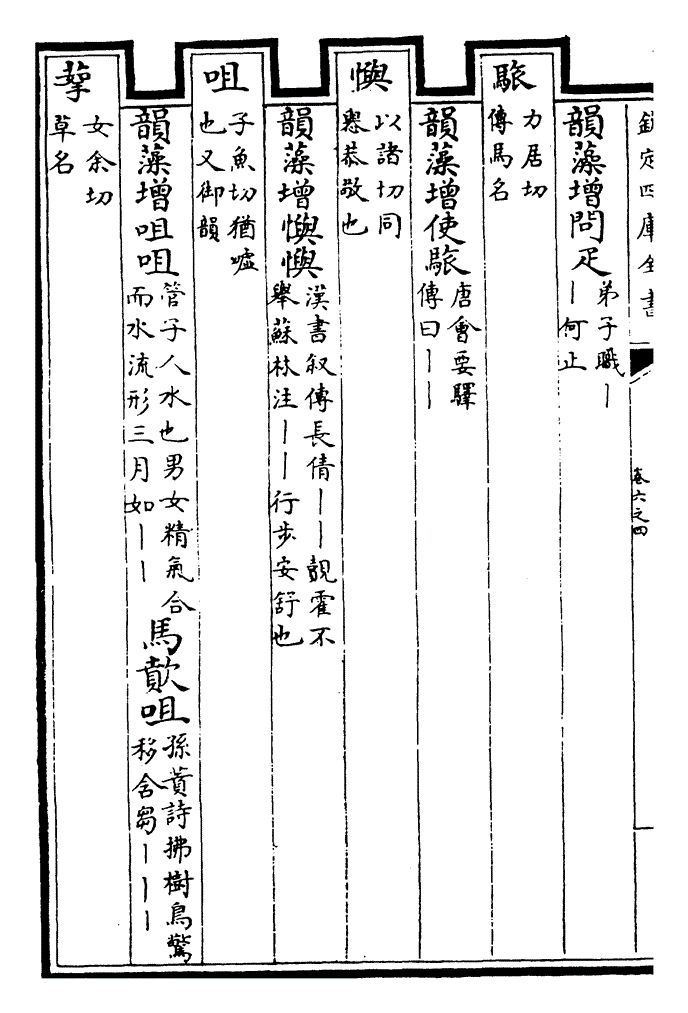 欽定四庫全書
卷六之四
韻藻增問疋
弟子職丨
丨何止
力居切
傳馬名
韻藻增使
唐會要驛
傳曰丨丨
懙
以諸切同
㦛恭敬也
韻藻增懙懙
漢書叙傳長倩丨丨覿霍不
舉蘇林注丨丨行步安舒也
咀
子魚切猶嘘
也又御韻
韻藻增咀咀
管子人水也男女精氣合
而水流形三月如丨丨
馬歕咀
孫蕡詩拂樹鳥驚
移含芻丨丨丨
蒘
女余切
草名